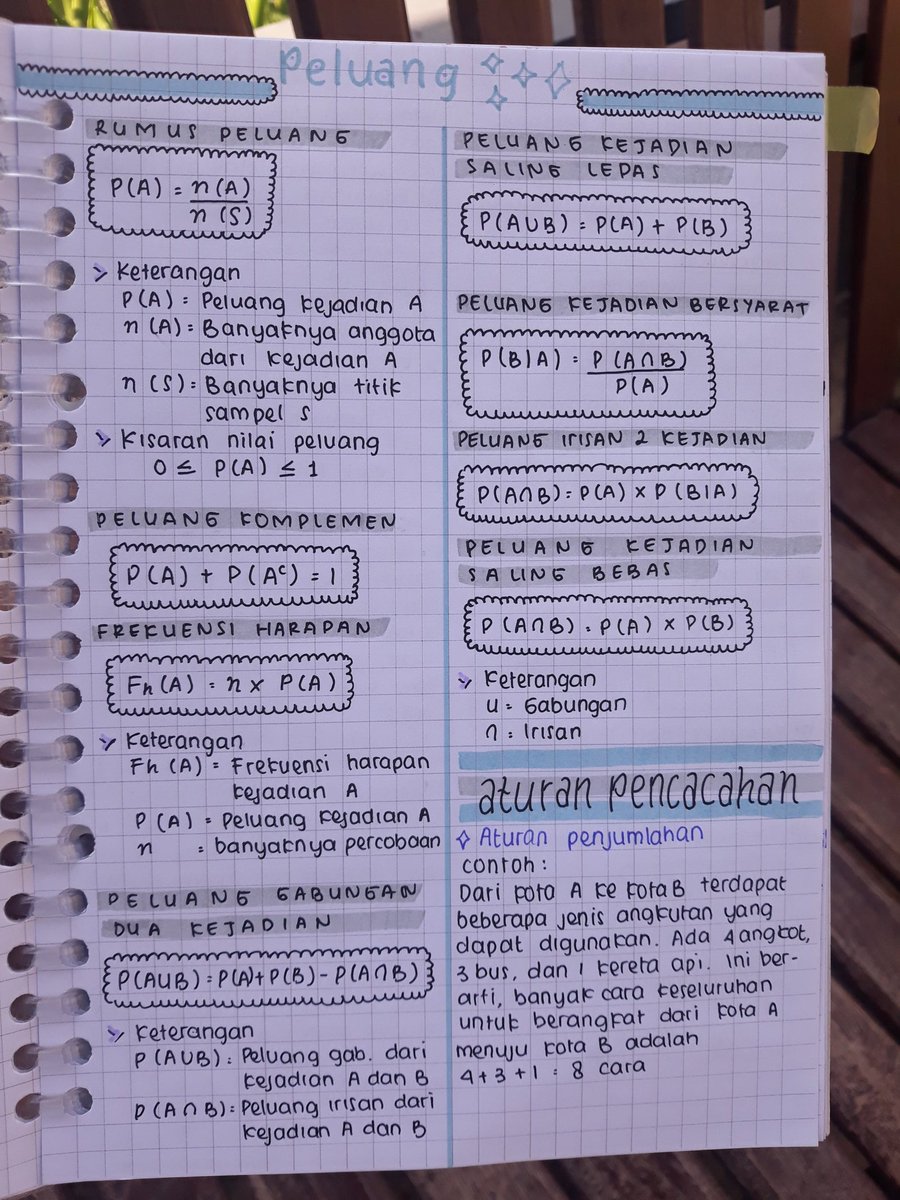 Peluang
RUMUS PELUANG
P(A) = n(A)
n(S)
Keterangan
P(A) = Peluang kejadian A
n(A) = Banyaknya anggota
dari kejadian A
n(S) = Banyaknya titik
sampel S
Kisaran nilai peluang
0 ≤ P(A) ≤ 1
PELUANG KOMPLEMEN
P(A) + P(Aᶜ) = 1
FREKUENSI HARAPAN
Fh(A) = n x P(A)
Keterangan
Fh (A) = Frekuensi harapan
kejadian A
P(A) = Peluang kejadian A
n = banyaknya percobaan
PELUANG GABUNGAN
DUA KEJADIAN
P(A∪B) = P(A) + P(B) - P(A∩B)
Keterangan
P(A∪B) = Peluang gab. dari
kejadian A dan B
P(A∩B) = Peluang irisan dari
kejadian A dan B
PELUANG KEJADIAN
SALING LEPAS
P(A∪B) = P(A) + P(B)
PELUANG KEJADIAN BERSYARAT
P(B|A) = P(A∩B)
P(A)
PELUANG IRISAN 2 KEJADIAN
P(A∩B) = P(A) x P(B|A)
PELUANG KEJADIAN
SALING BEBAS
P(A∩B) = P(A) x P(B)
Keterangan
∪ = Gabungan
∩ = Irisan
aturan pencacahan
Aturan penjumlahan
contoh :
Dari kota A ke kota B terdapat
beberapa jenis angkutan yang
dapat digunakan. Ada 4 angkot,
3 bus, dan 1 kereta api. Ini ber-
arti, banyak cara keseluruhan
untuk berangkat dari kota A
menuju kota B adalah
4 + 3 + 1 = 8 cara